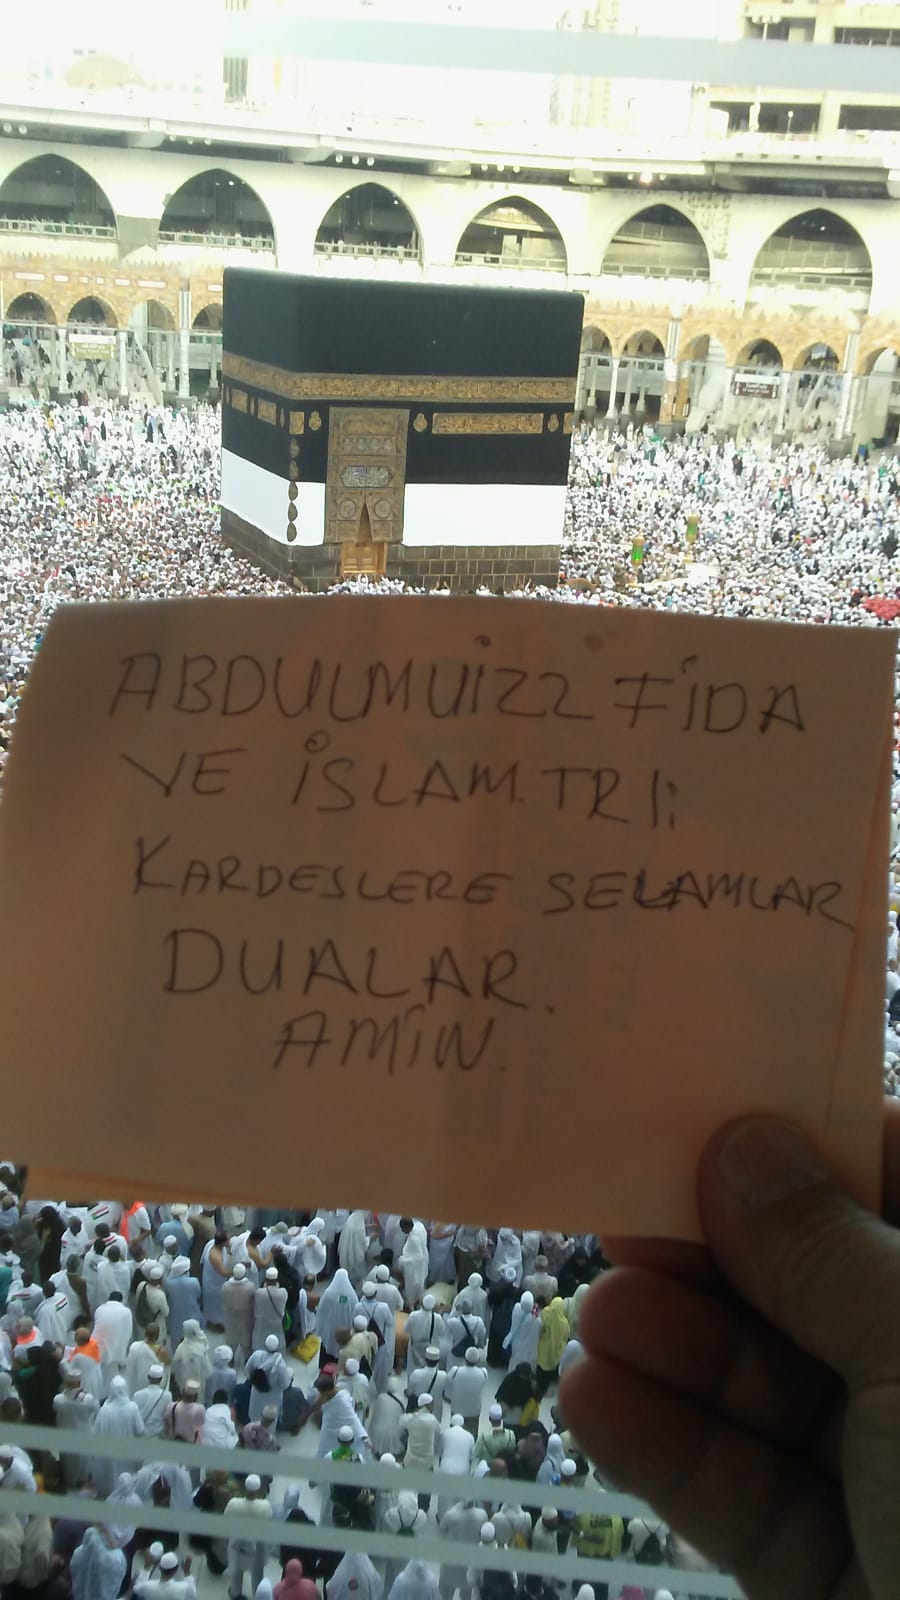 ABDULMUİZZ FİDA
VE İSLAM.TR Lİ
KARDESLERE SELAMLAR
DUALAR.
AMİN.